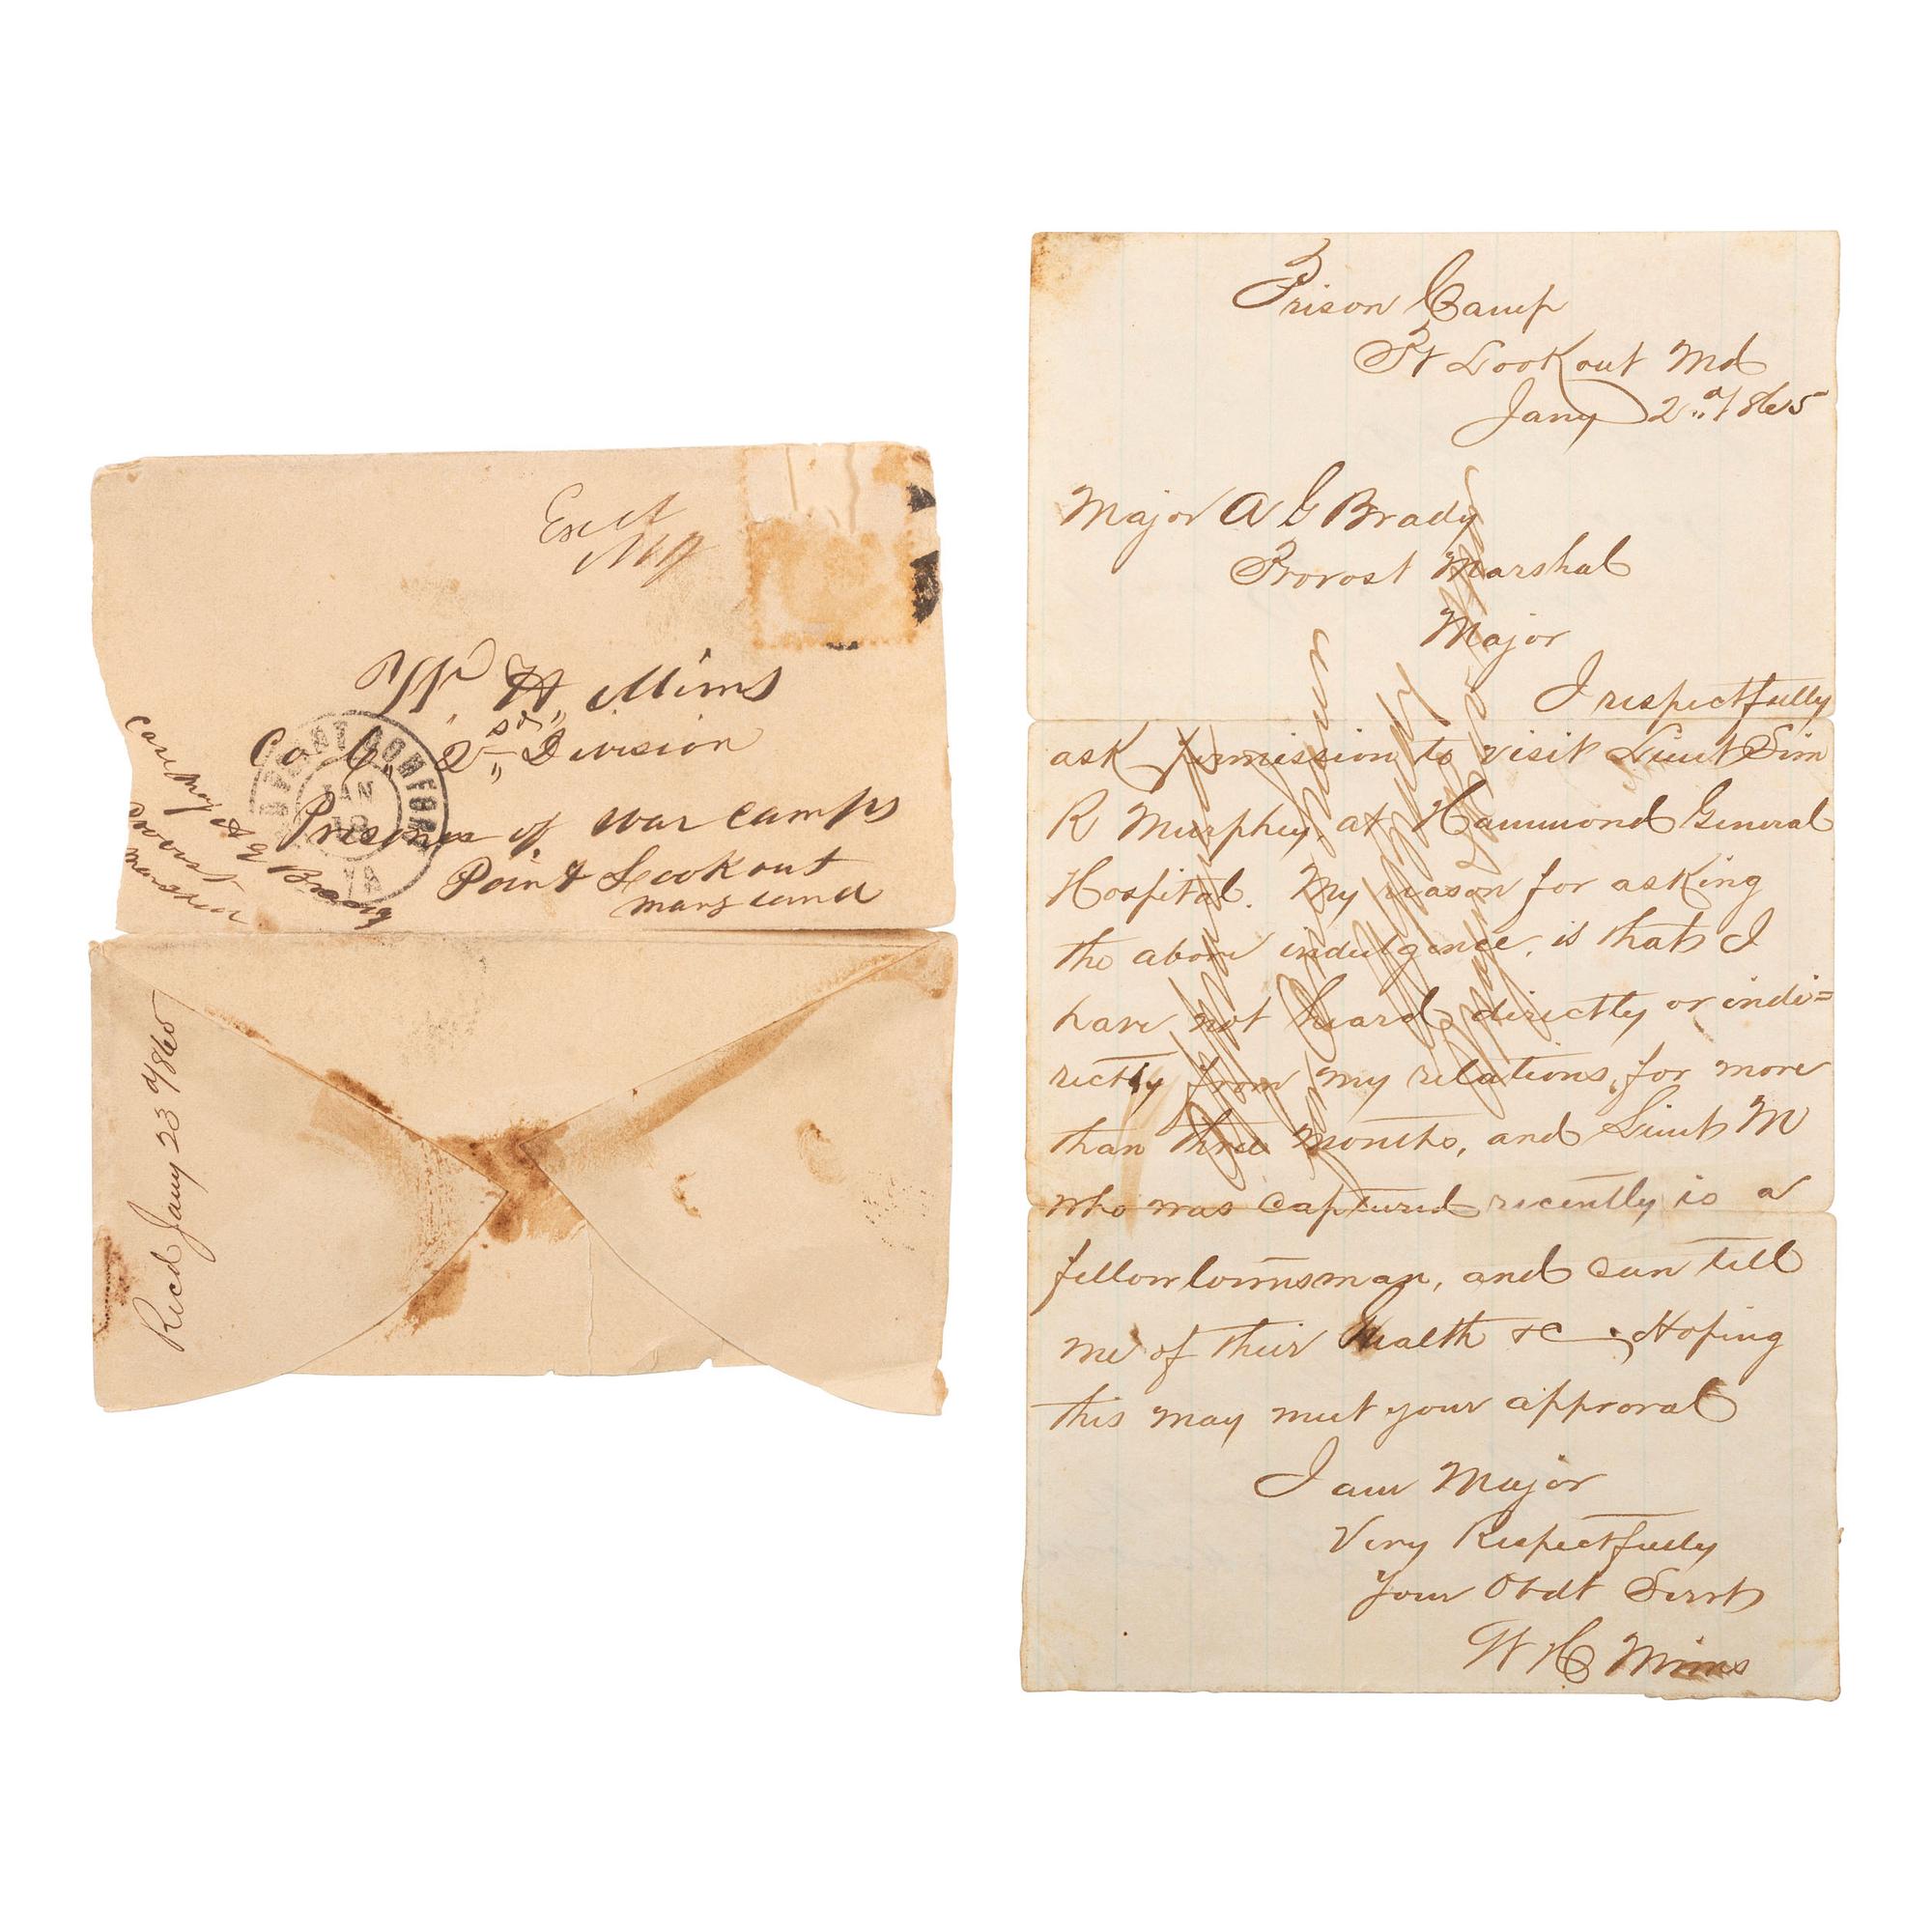 W. H. Mims
Co C. 2nd Division
Prisoner of war camps
Point Lookout
maryland
Care Maj A G Brady
Provost
Marshall
OLD POINT COMFORT
JAN
VA
Recd Jany 23d/865
Prison Camp
Pt Lookout Md
Jany 2nd/865
Major A G Brady
Provost Marshal
Major
I respectfully
ask permission to visit Lieut Sim
R Murphey, at Hammond General
Hospital. My reason for asking
the above indulgence, is that I
have not heard directly or indi=
rectly from my relations, for more
than three months, and Lieut M
who was captured recently is a
fellow townsman, and can tell
me of their health &c. Hoping
this may meet your approval
I am Major
Very Respectfully
Your Obdt Servt
W H Mims